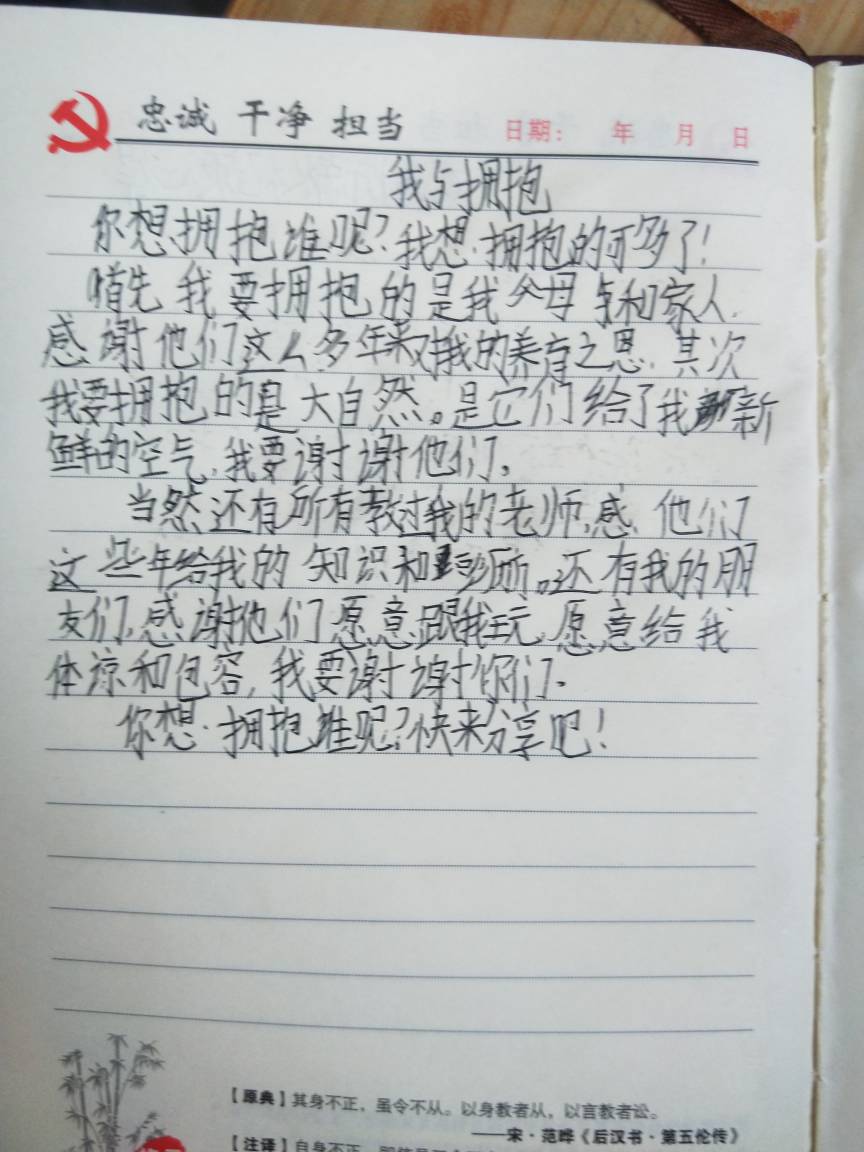 忠诚 干净 担当
日期： 年 月 日
我与拥抱
你想拥抱谁呢?我想拥抱的可多了!
首先我要拥抱的是我父母和家人,
感谢他们这么多年来对我的养育之恩,其次
我要拥抱的是大自然。是它们给了我新
鲜的空气,我要谢谢他们。
当然还有所有教过我的老师,感 他们
这些年给我的知识和
还有我的朋
友们,感谢他们愿意跟我玩,愿意给我
体谅和包容,我要谢谢你们.
你想拥抱谁呢?快来分享吧!
【原典】其身不正，虽令不从。以身教者从，以言教者讼。
——宋·范晔《后汉书·第五伦传》
【注译】自身不正